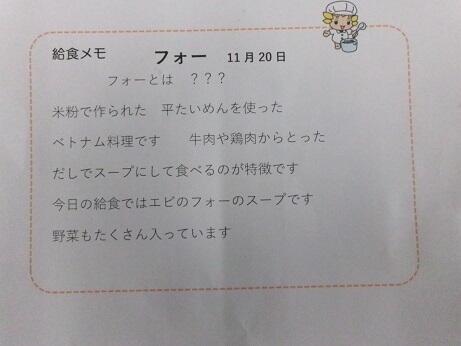 給食メモ　フォー　11月20日
フォーとは　？？？
米粉で作られた　平たいめんを使った
ベトナム料理です　牛肉や鶏肉からとった
だしでスープにして食べるのが特徴です
今日の給食ではエビのフォーのスープです
野菜もたくさん入っています